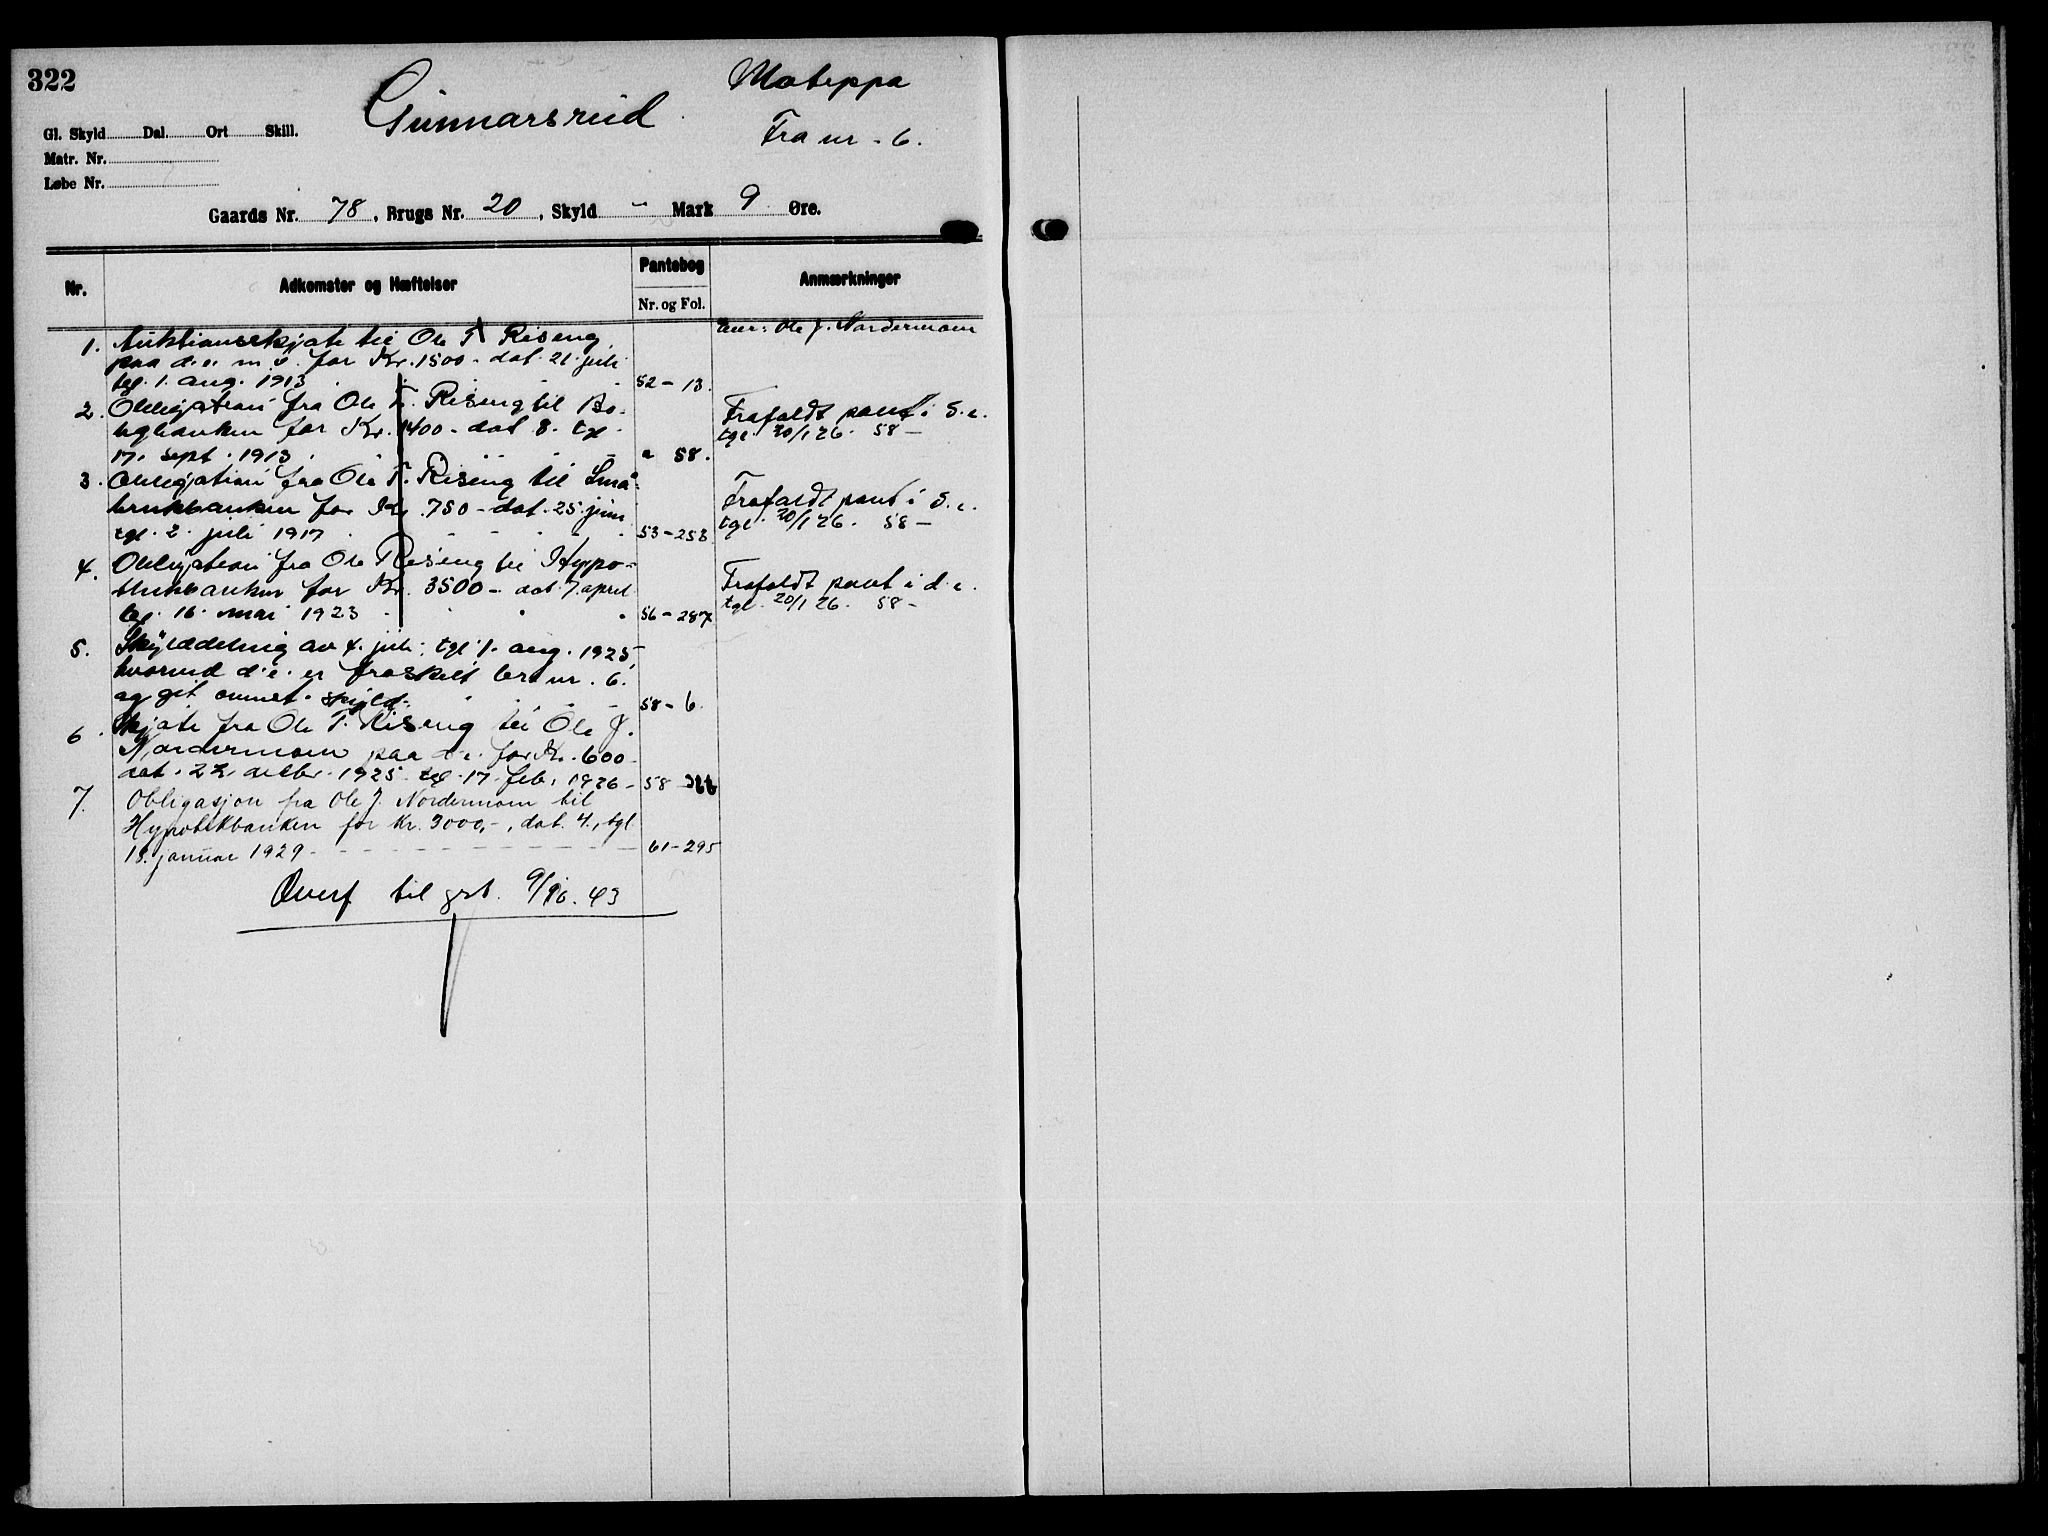 322
Gunnarsrud
Moteppa
Fra nr - 6.
Gl. Skyld Dal. Ort Skill.
Matr. Nr.
Løbe Nr.
Gaards Nr. 78, Brugs Nr. 20, Skyld - Mark 9 Øre.
Nr.
Adkomster og Hæftelser
Pantebog
Nr. og Fol.
Anmærkninger
Eier: Ole J. Nordermoen
1. Auktionsskjøte til Ole T. Riseng
paa d. e. m. v. for Kr. 1500 - dat. 21 juli
tgl. 1. aug. 1913 52 - 13.
2. Obligation fra Ole T. Riseng til Bo-
ligbanken for Kr. 1400 - dat 8. tgl
17. sept. 1913 " 58.
Frafaldt pant i d. e.
tgl. 20/1 26. 58 -
3. Obligation fra Ole T. Riseng til Små-
brukbanken for Kr. 750 - dat. 25. juni
tgl. 2. juli 1917 53 - 258
Frafaldt pant i d. e.
tgl. 20/1 26. 58 -
4. Obligation fra Ole Riseng til Hypo-
thekbanken for Kr. 3500 - dat 7. april
tgl. 16. mai 1923 56 - 287
Frafaldt pant i d. e.
tgl. 20/1 26. 58 -
5. Skylddeling av 4. juli, tgl 1. aug. 1925,
hvorved d. e. er fraskilt br. nr. 6.
og git annet skyld. 58 - 6.
6. Skjøte fra Ole T. Riseng til Ole J.
Nordermoen paa d. e. for Kr. 600
dat. 22. decbr. 1925 tgl. 17. feb. 1926 - 58
7. Obligasjon fra Ole J. Nordermoen til
Hypotekbanken for kr. 3000,-, dat. 4., tgl.
15. januar 1929 - 61 - 295
Overf til grb. 9/10. 43